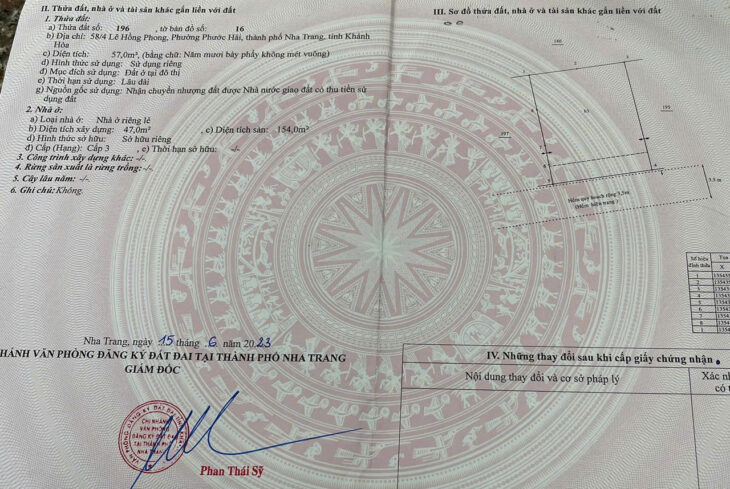 II. Thửa đất, nhà ở và tài sản khác gắn liền với đất
1. Thửa đất:
a) Thửa đất số: 196 , tờ bản đồ số: 16
b) Địa chỉ: 58/4 Lê Hồng Phong, Phường Phước Hải, thành phố Nha Trang, tỉnh Khánh
Hòa
c) Diện tích: 57,0m², (bằng chữ: Năm mươi bảy phẩy không mét vuông)
d) Hình thức sử dụng: Sử dụng riêng
đ) Mục đích sử dụng: Đất ở tại đô thị
e) Thời hạn sử dụng: Lâu dài
g) Nguồn gốc sử dụng: Nhận chuyển nhượng đất được Nhà nước giao đất có thu tiền sử
dụng đất
2. Nhà ở:
a) Loại nhà ở: Nhà ở riêng lẻ
b) Diện tích xây dựng: 47,0m² , c) Diện tích sàn: 154,0m²
d) Hình thức sở hữu: Sở hữu riêng
đ) Cấp (Hạng): Cấp 3 , e) Thời hạn sở hữu: -/-
3. Công trình xây dựng khác: -/-
4. Rừng sản xuất là rừng trồng: -/-
5. Cây lâu năm: -/-
6. Ghi chú: Không.
Nha Trang, ngày 15 tháng 6 năm 2023
HÁNH VĂN PHÒNG ĐĂNG KÝ ĐẤT ĐAI TẠI THÀNH PHỐ NHA TRANG
GIÁM ĐỐC
CHI NHÁNH
VĂN PHÒNG
ĐĂNG KÝ ĐẤT ĐAI
TẠI THÀNH PHỐ
NHA TRANG
Phan Thái Sỹ
III. Sơ đồ thửa đất, nhà ở và tài sản khác gắn liền với đất
197
195
Hẻm quy hoạch rộng 3,5m
(Hẻm hiện trạng)
3.5 m
Số hiệu
đỉnh thửa
Tọa
X
1
2
3
4
5
6
7
8
1
IV. Những thay đổi sau khi cấp giấy chứng nhận
Nội dung thay đổi và cơ sở pháp lý
Xác nh
có t